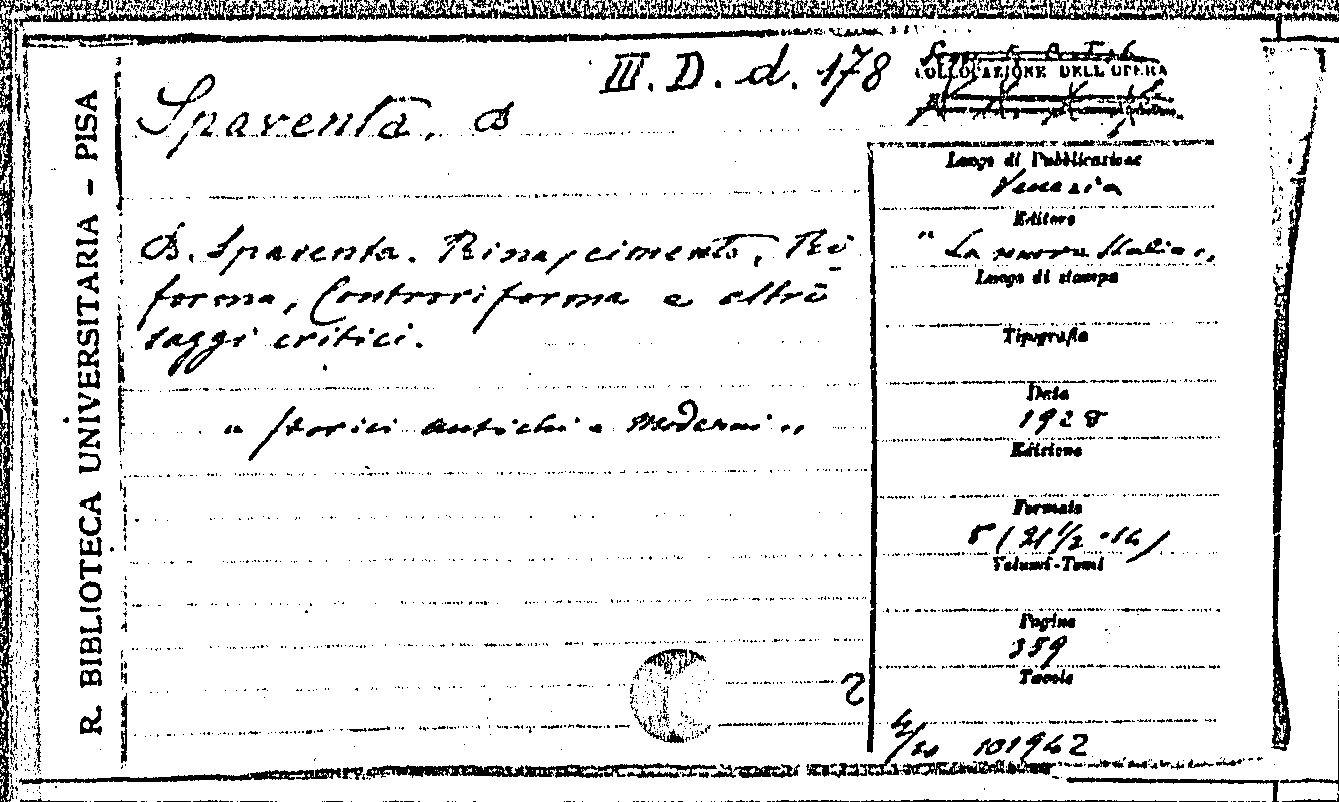 R. BIBLIOTECA UNIVERSITARIA - PISA
III. D. d. 178
COLLOCAZIONE DELL'OPERA
Spaventa, B
B. Spaventa. Rinascimento, Ri-
forma, Controriforma e altri
saggi critici.
"Storici antichi e moderni"
Luogo di Pubblicazione
Venezia
Editore
"La nuova Italia"
Luogo di stampa
Tipografia
Data
1928
Edizione
Formato
8 (21 1/2 · 14)
Volumi-Tomi
Pagine
359
Tavole
2
101942